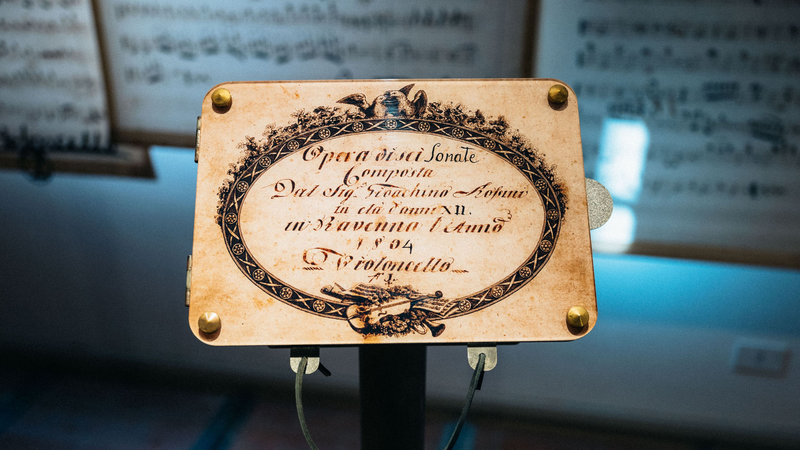 Opera di sei Sonate
Composta
Dal Sig.r Gioachino Rossini
in età d'anni XII.
in Ravenna l'Anno
1804
Violoncello